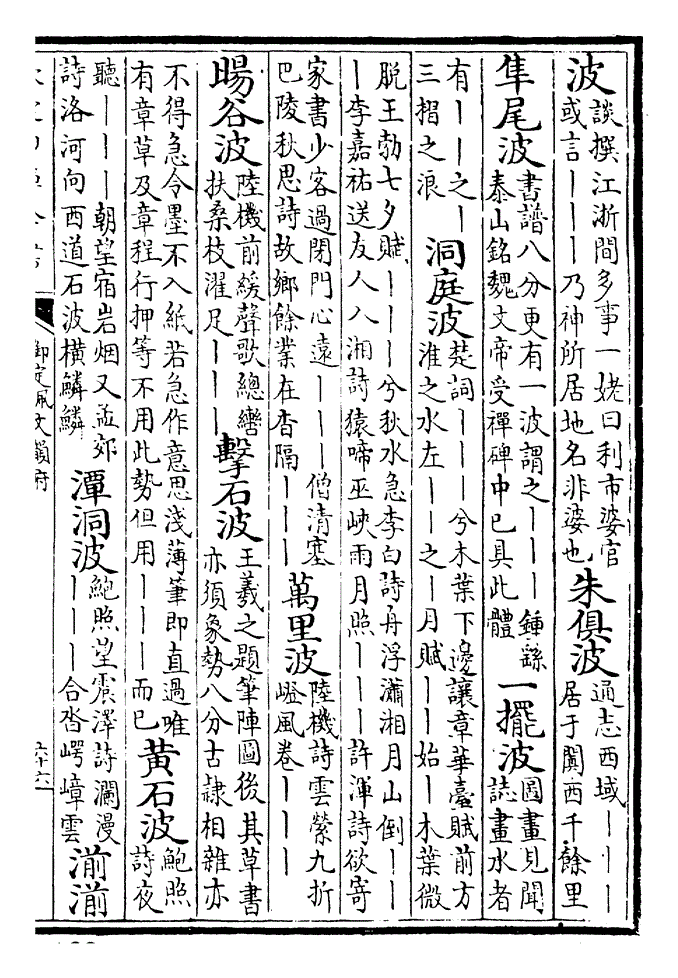 波
談撰江浙間多事一姥曰利市婆官
或言｜｜｜乃神所居地名非婆也
朱俱波
通志西域｜｜｜
居于闐西千餘里
隼尾波
書譜八分更有一波謂之｜｜｜鍾繇
泰山銘魏文帝受禪碑中已具此體
一擺波
圖畫見聞
誌畫水者
有｜｜之｜
三摺之浪
洞庭波
楚詞｜｜｜兮木葉下邊讓章華臺賦前方
淮之水左｜｜之｜月賦｜｜始｜木葉微
脫王勃七夕賦｜｜｜兮秋水急李白詩舟浮瀟湘月山倒｜｜
｜李嘉祐送友人入湘詩猿啼巫峽雨月照｜｜｜許渾詩欲寄
家書少客過閉門心遠｜｜｜僧清塞
巴陵秋思詩故鄉餘業在杳隔｜｜｜
萬里波
陸機詩雲縈九折
嶝風卷｜｜｜
暘谷波
陸機前緩聲歌總轡
扶桑枝濯足｜｜｜
擊石波
王羲之題筆陣圖後其草書
亦須象勢八分古隸相雜亦
不得急令墨不入紙若急作意思淺薄筆即直過唯
有章草及章程行押等不用此勢但用｜｜｜而已
黃石波
鮑照
詩夜
聽｜｜｜朝望宿岩烟又孟郊
詩洛河向西道石波橫鱗鱗
潭洞波
鮑照望震澤詩瀾漫
｜｜｜合沓崿嶂雲
湔湔
御定佩文韻府
六十六